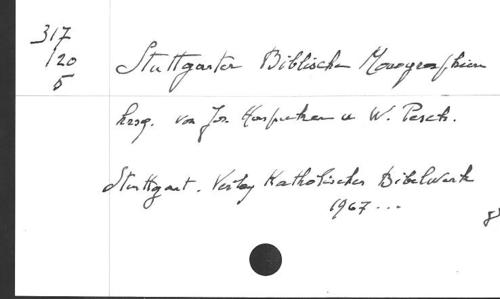 317
/20
5
Stuttgarter Biblische Monographien
hrsg. von Jos. Haspecker u W. Pesch.
Stuttgart. Verlag Katholisches Bibelwerk
1967 ...